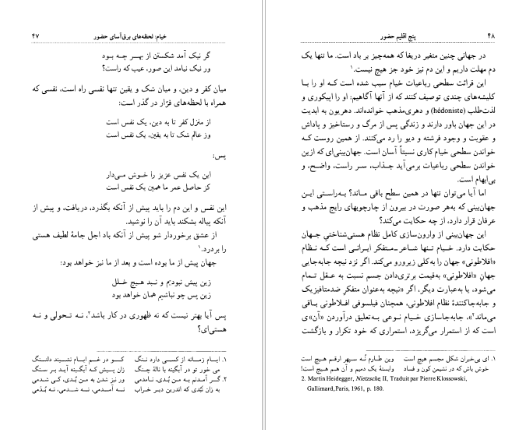 خیام: لحظه‌های برق‌آسای حضور ۴۷
گر نیک آمد شکستن از بهر چه بود
ور نیک نیامد این صور، عیب که راست؟
میان کفر و دین، و میان شک و یقین تنها نفسی راه است، نفسی که
همراه با لحظه‌های فرّار در گذر است:
از منزل کفر تا به دین، یک نفس است
وز عالم شک تا به یقین، یک نفس است
پس:
این یک نفس عزیز را خوش می‌دار
کز حاصل عمر ما همین یک نفس است
این نفس و این دم را باید پیش از آنکه بگذرد، دریافت، و پیش از
آنکه پیاله بشکند باید آن را نوشید.
از عشق برخوردار شو پیش از آنکه باد اجل جامهٔ لطیف هستی
را بردرد.۱
جهان پیش از ما بوده است و بعد از ما نیز خواهد بود:
زین پیش نبودیم و نبد هیچ خلل
زین پس چو نباشیم همان خواهد بود
پس آیا بهتر نیست که نه ظهوری در کار باشد۲، نه تحولی و نه
هستی‌ای؟
۱. ایام زمانه از کسی دارد ننگ کو در غم ایام نشیند دلتنگ
می خور تو در آبگینه با نالهٔ چنگ زان پیش کت آبگینه آید بر سنگ
۲. گر آمدنم به من بُدی، نامدمی ور نیز شدن به من بُدی، کی شدمی
به زان نُبُدی که اندرین دیر خراب نه آمدمی، نه شدمی، نه بُدمی
۴۸ پنج اقلیم حضور
در جهانی چنین متغیر دریغا که همه‌چیز بر باد است. ما تنها یک
دم مهلت داریم و این دم نیز خود جز هیچ نیست.۱
این قرائت سطحی رباعیات خیام سبب شده است که او را با
کلیشه‌های چندی توصیف کنند که از آنها آگاهیم: او را اپیکوری و
لذت‌طلب (hédoniste) و دهری‌مذهب خوانده‌اند. دهریون به ابدیت
در این جهان باور دارند و زندگی پس از مرگ و رستاخیز و پاداش
و عقوبت و وجود فرشته و دیو را رد می‌کنند. از همین روست که
خواندن سطحی خیام کاری نسبتاً آسان است. جهان‌بینی‌ای که ازین
خواندن سطحی رباعیات برمی‌آید جذاب، سرراست، واضح، و
بی‌ابهام است.
اما آیا می‌توان تنها در همین سطح باقی ماند؟ به‌راستی این
جهان‌بینی که به‌هر صورت در بیرون از چارچوبهای رایج مذهب و
عرفان قرار دارد، از چه حکایت می‌کند؟
این جهان‌بینی از وارون‌سازی کامل نظام هستی‌شناختی جهان
حکایت دارد. خیام تنها شاعر ـ متفکر ایرانی است که نظام
«افلاطونی» جهان را به‌کلی زیرورو می‌کند. اگر نزد نیچه جابه‌جایی
جهان «افلاطونی» به‌قیمت برتری‌دادن جسم نسبت به عقل تمام
می‌شود، یا به‌عبارت دیگر، اگر «نیچه به‌عنوان متفکرِ ضدمتافیزیک
و جابه‌جاکنندهٔ نظام افلاطونی، همچنان فیلسوفی افلاطونی باقی
می‌ماند»۲، جابه‌جاسازی خیام نوعی به‌تعلیق درآوردن «آن»‌ی
است که از استمرار می‌گریزد، استمراری که خود تکرار و بازگشت
۱. ای بی‌خبران شکل مجسم هیچ است وین طارم نُه سپهر ارقم هیچ است
خوش باش که در نشیمن کون و فساد وابستهٔ یک دمیم و آن هم هیچ است!
2. Martin Heidegger, Nietzsche II, Traduit par Pierre Klossowski,
Gallimard, Paris, 1961, p. 180.